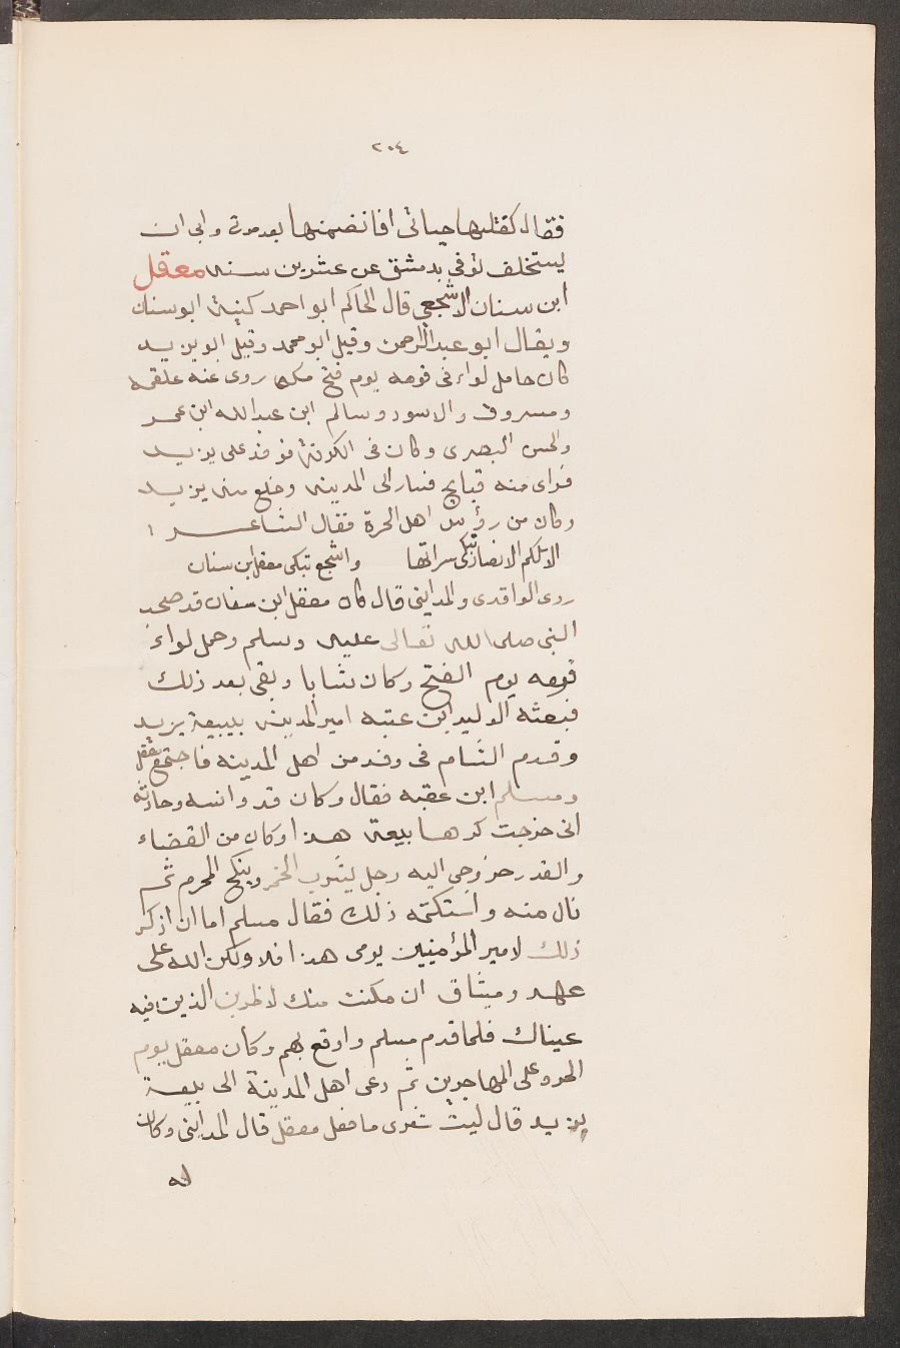 ٢٠٤
فقال كفلتها حياتى افا نضمنها بعد موتى وابى ان
يستخلف توفى بدمشق عن عشرين سنه معقل
ابن سنان الاشجعي قال الحاكم ابو احمد كنيته ابو سنان
ويقال ابو عبد الرحمن وقيل ابو محمد وقيل ابو يزيد
كان حامل لواء فى قومه يوم فتح مكه روى عنه علقمه
ومسروق والاسود وسالم ابن عبد الله ابن عمر
والحسن البصرى وكان فى الكوفة فوفد على يزيد
فراى منه قبايح فسار الى المدينه وخلع يزيد
وكان من رؤس اهل الحرة فقال الشاعر
الا تلكم الانصار تبكى سراتها واشجع تبكى معقل ابن سنان
روى الواقدى والمداينى قال كان معقل ابن سنان قد صحب
النبى صلى الله تعالى عليه وسلم وحمل لواء
قومه يوم الفتح وكان شابا وبقى بعد ذلك
فبعثه الوليد ابن عتبه امير المدينه ببيعة يزيد
وقدم الشام فى وفد من اهل المدينه فاجتمع معقل
ومسلم ابن عقبه فقال وكان قد وانسه وحادثه
انى خرجت كرها بيعة هذا وكان من القضاء
والقدر خروجى اليه رجل يشرب الخمر وينكح المحرم ثم
نال منه واستكتمه ذلك فقال مسلم اما ان اذكر
ذلك لامير المؤمنين يومى هذا فلا ولكن الله على
عهد وميثاق ان مكنت منك لاظربن الذين فيه
عيناك فلما قدم مسلم واوقع بهم وكان معقل يوم
الحره على المهاجرين ثم دعى اهل المدينة الى بيعة
يزيد قال ليث شعرى ما فعل معقل قال المداينى وكان
له